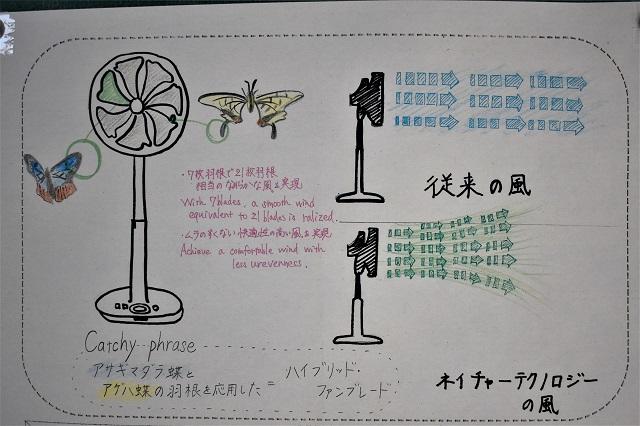 ・7枚羽根で21枚羽根
相当のなめらかな風を実現
With 7blades, a smooth wind
equivalent to 21 blades is ralized.
・ムラの少ない快適性の高い風を実現
Achieve a comfortable wind with
less unevenness.
従来の風
ネイチャーテクノロジー
の風
Catchy phrase
アサギマダラ蝶と
アゲハ蝶の羽根を応用した=
ハイブリッド・
ファンブレード